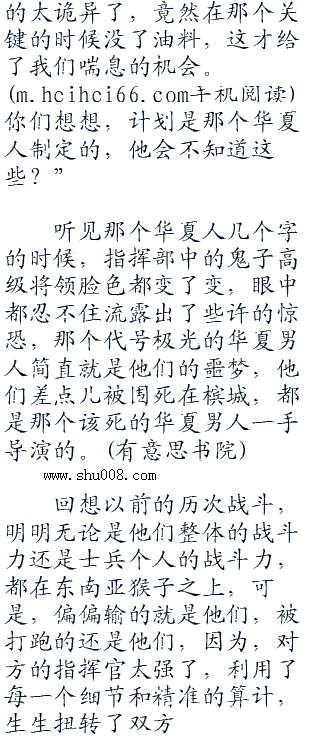 的太诡异了，竟然在那个关
键的时候没了油料，这才给
了我们喘息的机会。
(m.hcihci66.com手机阅读)
你们想想，计划是那个华夏
人制定的，他会不知道这
些？”
听见那个华夏人几个字
的时候，指挥部中的鬼子高
级将领脸色都变了变，眼中
都忍不住流露出了些许的惊
恐，那个代号极光的华夏男
人简直就是他们的噩梦，他
们差点儿被围死在槟城，都
是那个该死的华夏男人一手
导演的。(有意思书院)
www.shu008.com
回想以前的历次战斗，
明明无论是他们整体的战斗
力还是士兵个人的战斗力，
都在东南亚猴子之上，可
是，偏偏输的就是他们，被
打跑的还是他们，因为，对
方的指挥官太强了，利用了
每一个细节和精准的算计，
生生扭转了双方